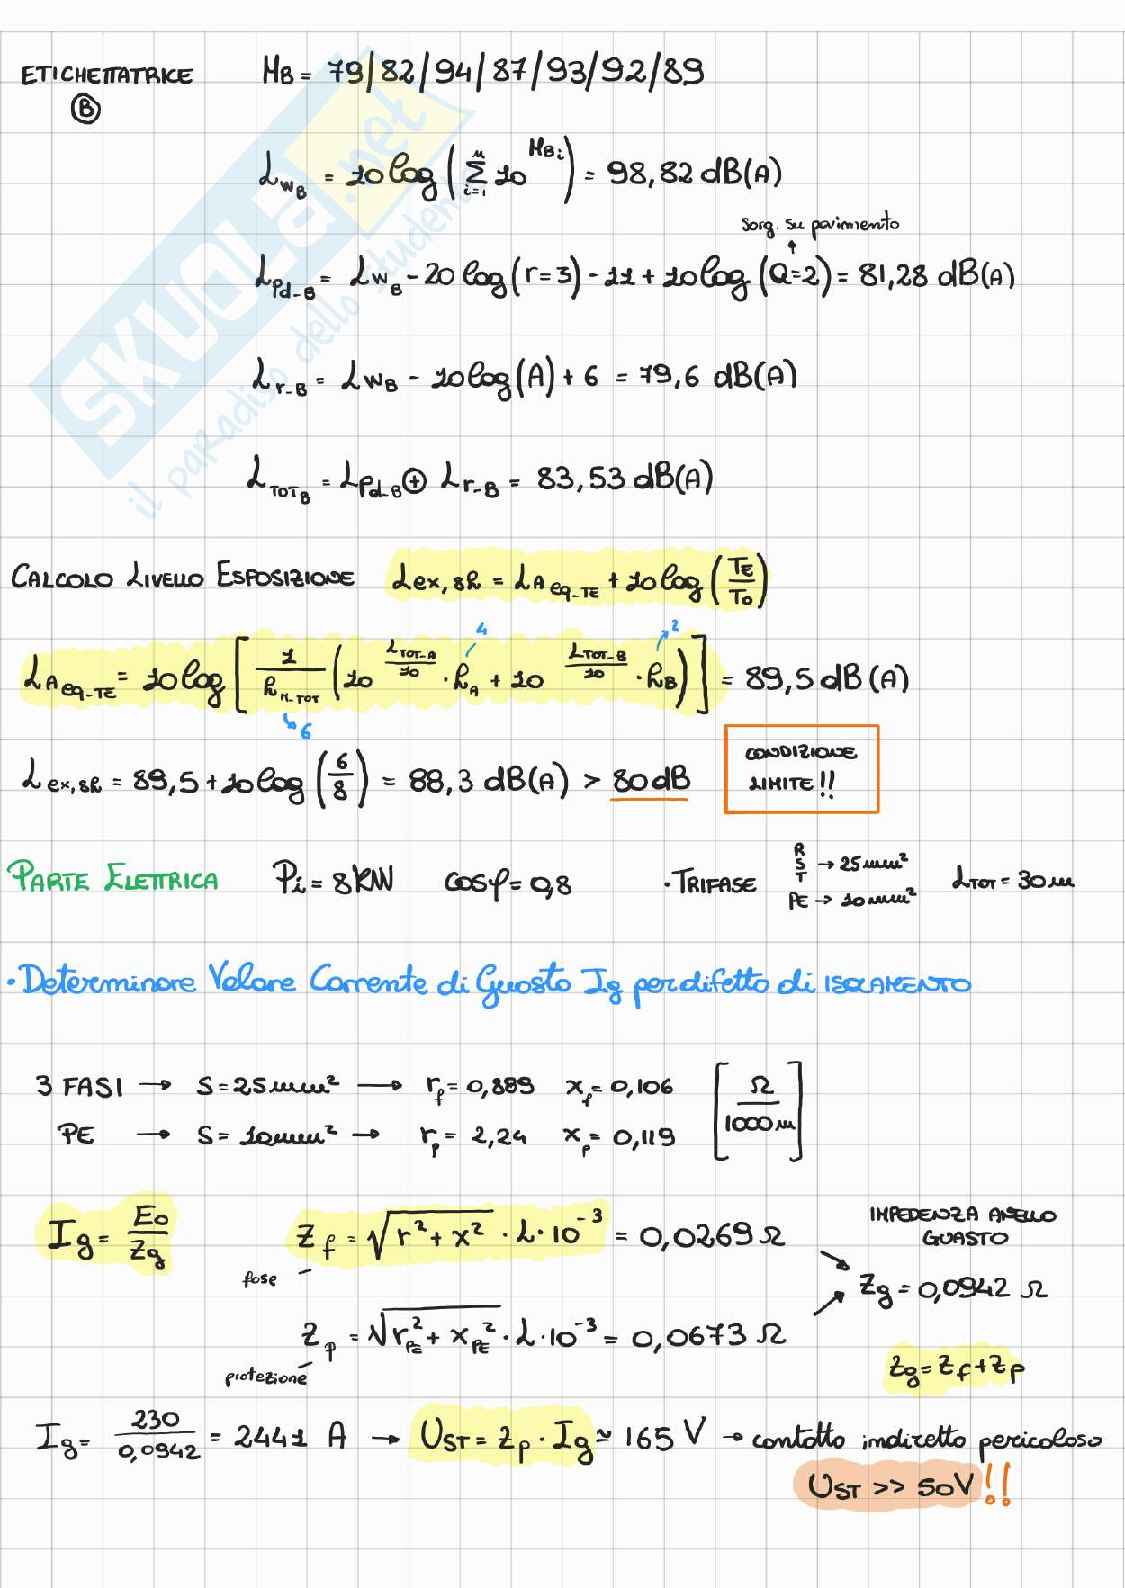 ETICHETTATRICE HB = 79/82/94/87/93/92/89
B
L_WB = 10 log (Σ_{i=1}^{n} 10^{HBi}) = 98,82 dB(A)
sorg. su pavimento
L_Pd_B = L_WB - 20 log (r=3) - 11 + 10 log (Q=2) = 81,28 dB(A)
L_r-B = L_WB - 10 log (A) + 6 = 79,6 dB(A)
L_TOT_B = L_Pd_B ⊕ L_r-B = 83,53 dB(A)
CALCOLO LIVELLO ESPOSIZIONE Lex,8h = LA eq-TE + 10 log (TE/TO)
4 2
LA eq-TE = 10 log [ 1/h n.TOT (10^{LTOT-A/10} · hA + 10^{LTOT-B/10} · hB) ] = 89,5 dB(A)
6
L ex,8h = 89,5 + 10 log (6/8) = 88,3 dB(A) > 80 dB
CONDIZIONE
LIMITE!!
PARTE ELETTRICA Pi = 8 KW cosφ = 0,8 · TRIFASE R S T → 25 mm² PE → 10 mm² LTOT = 30 m
· Determinare Valore Corrente di Guasto Ig per difetto di ISOLAMENTO
3 FASI → S = 25 mm² → rf = 0,889 xf = 0,106 [Ω/1000 m]
PE → S = 10 mm² → rp = 2,24 xp = 0,119
Ig = Eo/Zg Zf = √(r² + x²) · L · 10⁻³ = 0,0269 Ω
fase
IMPEDENZA ANELLO
GUASTO
Zg = 0,0942 Ω
Zp = √(r²PE + x²PE) · L · 10⁻³ = 0,0673 Ω
protezione
Zg = Zf + Zp
Ig = 230/0,0942 = 2441 A → UST = Zp · Ig ≃ 165 V → contatto indiretto pericoloso
UST >> 50V!!
SKUOLA.net
il paradiso dello studente